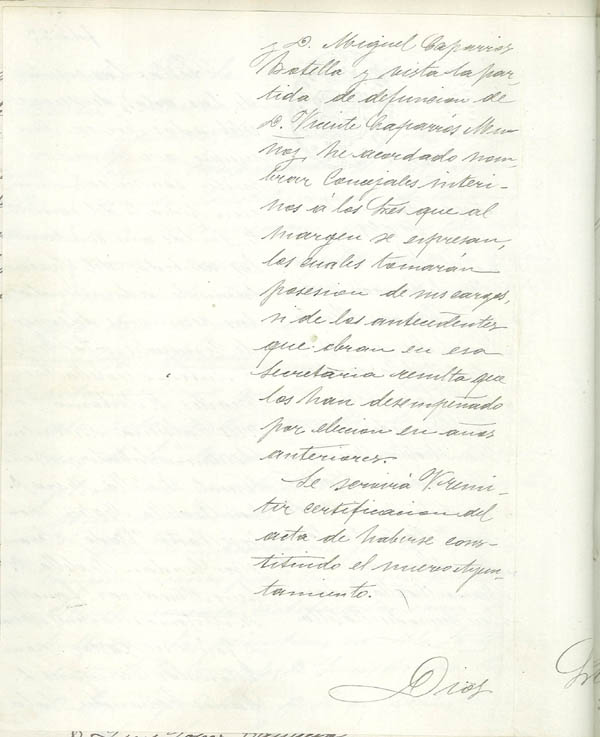 y D. Miguel Caparros
Botella y vista la par-
tida de defuncion de
D. Vicente Caparrós Mu-
ñoz, he acordado nom-
brar Concejales interi-
nos á los tres que al
margen se espresan,
los cuales tomarán
posesion de sus cargos,
si de los antecedentes
que obran en esa
Secretaria resulta que
los han desempeñado
por eleccion en años
anteriores.
Se servirá V. remi-
tir certificacion del
acta de haberse cons-
tituido el nuevo Ayun-
tamiento.
Dios